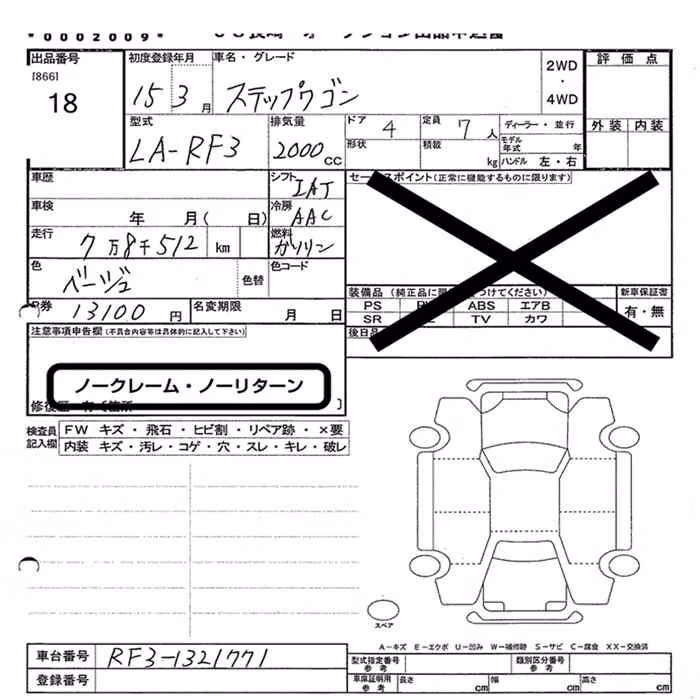 *0002009*
出品番号
[866]
18
初度登録年月
15 3 月
車名・グレード
ステップワゴン
2WD
・
4WD
評価点
外装 内装
型式
LA-RF3
排気量
2000 CC
ドア 4
形状
定員 7 人
積載 kg
ディーラー・並行
モデル年式 年
ハンドル 左・右
車歴
シフト IAT
セールスポイント(正常に機能するものに限ります)
車検 年 月( 日)
冷房 AAC
走行 7万8千512 km
燃料 ガソリン
色 ベージュ
色替
色コード
R券 13100 円
名変期限 月 日
装備品
新車保証書
有・無
PS ABS エアB
SR TV カワ
後日品
注意事項申告欄(不具合内容等は具体的に記入して下さい)
ノークレーム・ノーリターン
検査員記入欄
FW キズ・飛石・ヒビ割・リペア跡・×要
内装 キズ・汚レ・コゲ・穴・スレ・キレ・破レ
スペア
A-キズ E-エクボ U-凹み W-補修跡 S-サビ C-腐食 XX-交換済
車台番号 RF3-1321771
登録番号
型式指定番号 参考
類別区分番号 参考
車庫証明用 参考
長さ cm
幅 cm
高さ cm